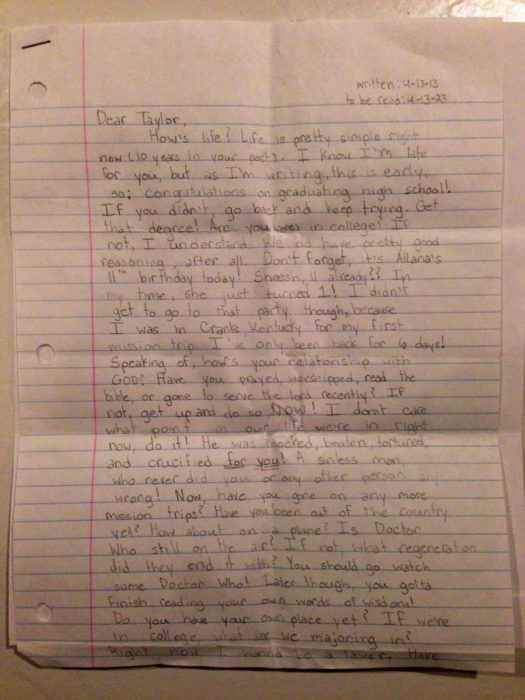 written: 4-13-13
to be read: 4-13-23
Dear Taylor,
How's life? Life is pretty simple right
now (10 years in your past). I know I'm late
for you, but as I'm writing, this is early,
so; congratulations on graduating high school!
If you didn't, go back and keep trying. Get
that degree! Are you in college? If
not, I understand. We do have pretty good
reasoning, after all. Don't forget, it's Allana's
11th birthday today! Sheesh, 11 already?? In
my time, she just turned 1! I didn't
get to go to that party though, because
I was in Cranks Kentucky for my first
mission trip. I've only been back for 6 days!
Speaking of, how's your relationship with
GOD? Have you prayed, worshipped, read the
bible, or gone to serve the lord recently? If
not, get up and do so NOW! I don't care
what point in our life we're in right
now, do it! He was mocked, beaten, tortured,
and crucified for you! A sinless man,
who never did you or any other person any
wrong! Now, have you gone on any more
mission trips? Have you been out of the country
yet? How about on a plane? Is Doctor
Who still on the air? If not, what regeneration
did they end it with? You should go watch
some Doctor Who! Later though, you gotta
finish reading your own words of wisdom!
Do you have your own place yet? If we're
in college, what are we majoring in?
Right now I wanna be a lawer. Have